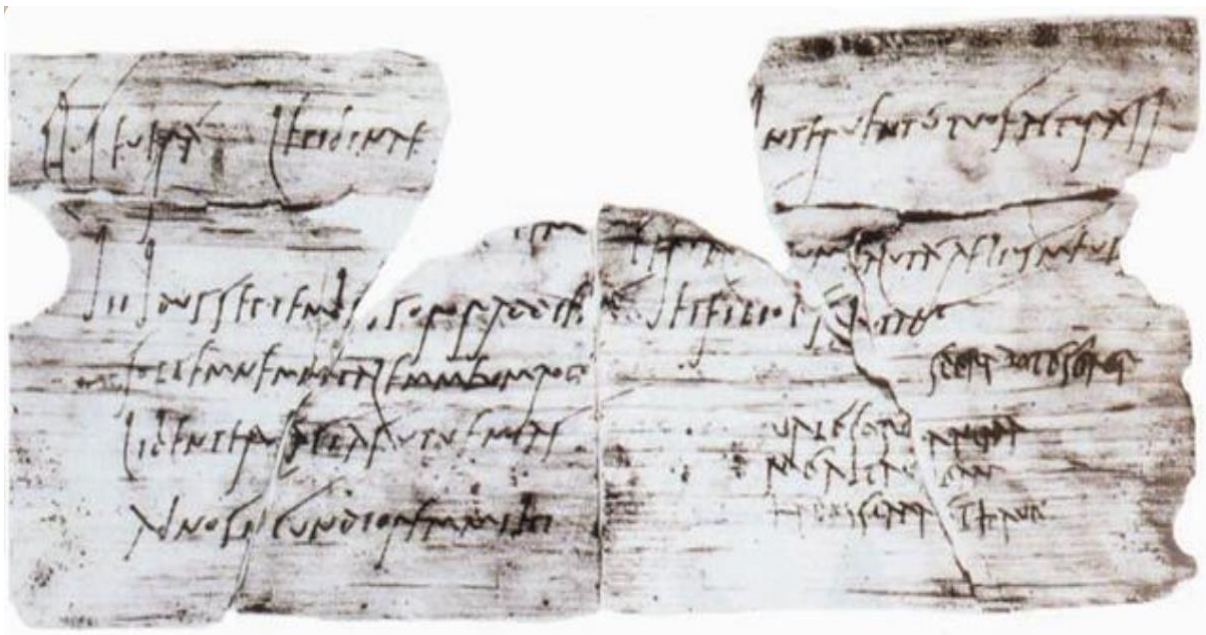 Cl · Seuerá Lepidinae
iii Idus Septembres soror ad diem
sollemnem natalem meum rogo
libenter faciás ut uenias
ad nos iucundiorem mihi
interuentú tuo facturá si
uum salutá Aelius meus
et filiolus salutant
sperabo te soror
uale soror anima
mea ita ualeam
karissima et haue